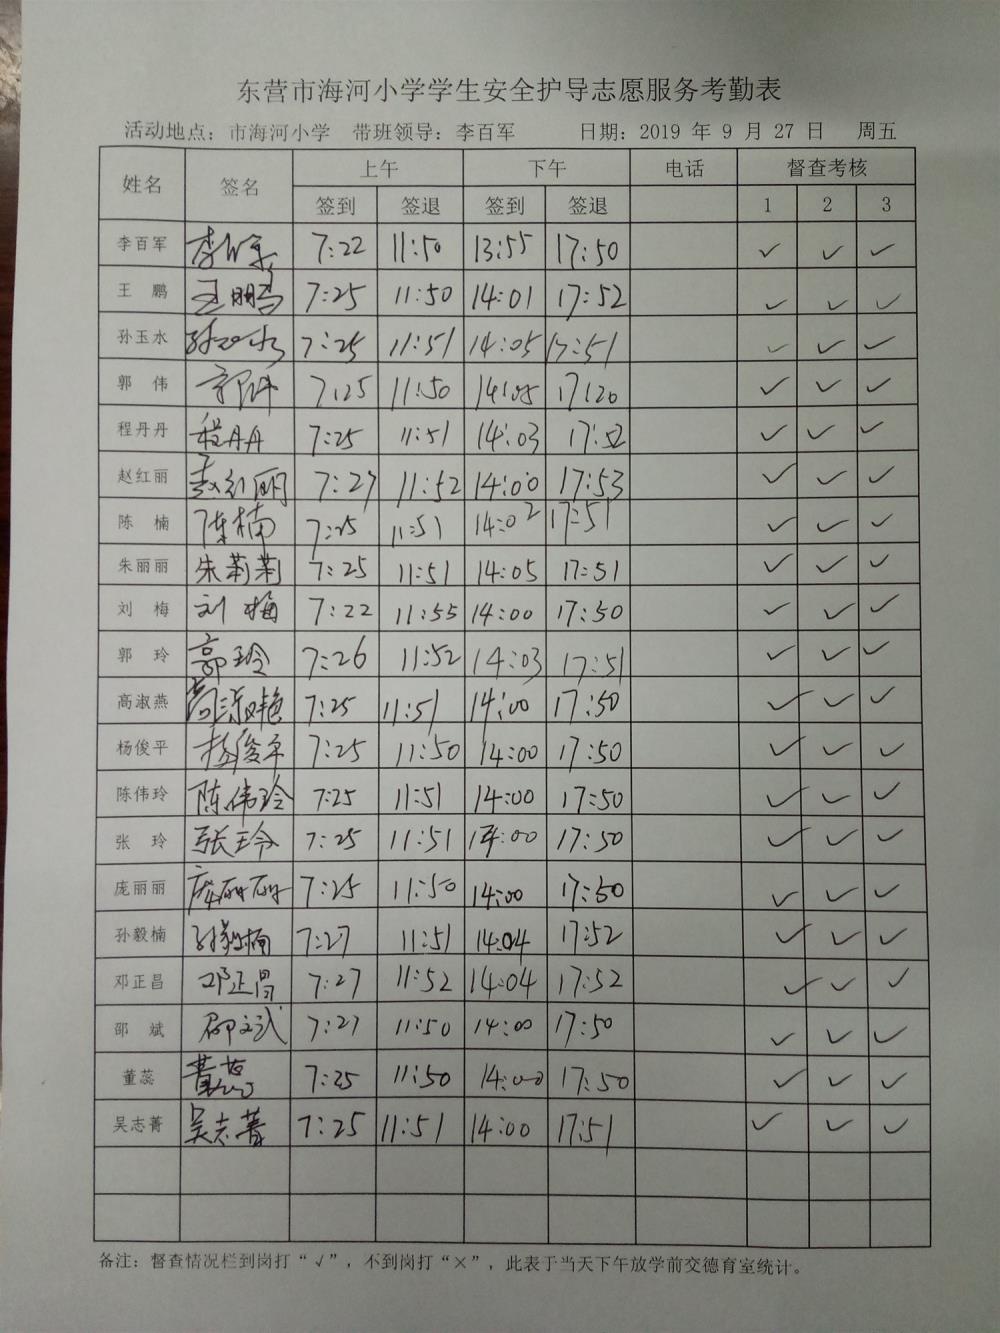 东营市海河小学学生安全护导志愿服务考勤表
活动地点：市海河小学 带班领导：李百军 日期：2019 年 9 月 27 日 周五
姓名 签名 上午 下午 电话 督查考核
签到 签退 签到 签退 1 2 3
李百军 李百军 7:22 11:50 13:55 17:50 ✓ ✓ ✓
王 鹏 王鹏 7:25 11:50 14:01 17:52 ✓ ✓ ✓
孙玉水 孙玉水 7:25 11:51 14:05 17:51 ✓ ✓ ✓
郭 伟 郭伟 7:25 11:50 14:05 17:20 ✓ ✓ ✓
程丹丹 程丹丹 7:25 11:51 14:03 17:52 ✓ ✓ ✓
赵红丽 赵红丽 7:27 11:52 14:00 17:53 ✓ ✓ ✓
陈 楠 陈楠 7:25 11:51 14:02 17:51 ✓ ✓ ✓
朱丽丽 朱莉莉 7:25 11:51 14:05 17:51 ✓ ✓ ✓
刘 梅 刘梅 7:22 11:55 14:00 17:50 ✓ ✓ ✓
郭 玲 郭玲 7:26 11:52 14:03 17:51 ✓ ✓ ✓
高淑燕 7:25 11:51 14:00 17:50 ✓ ✓ ✓
杨俊平 杨俊平 7:25 11:50 14:00 17:50 ✓ ✓ ✓
陈伟玲 陈伟玲 7:25 11:51 14:00 17:50 ✓ ✓ ✓
张 玲 张玲 7:25 11:51 14:00 17:50 ✓ ✓ ✓
庞丽丽 庞丽丽 7:25 11:50 14:00 17:50 ✓ ✓ ✓
孙毅楠 孙毅楠 7:27 11:51 14:04 17:52 ✓ ✓ ✓
邓正昌 邓正昌 7:27 11:52 14:04 17:52 ✓ ✓ ✓
邵 斌 邵斌 7:27 11:50 14:00 17:50 ✓ ✓ ✓
董蕊 董蕊 7:25 11:50 14:00 17:50 ✓ ✓ ✓
吴志菁 吴志菁 7:25 11:51 14:00 17:51 ✓ ✓ ✓
备注：督查情况栏到岗打“√”，不到岗打“×”，此表于当天下午放学前交德育室统计。